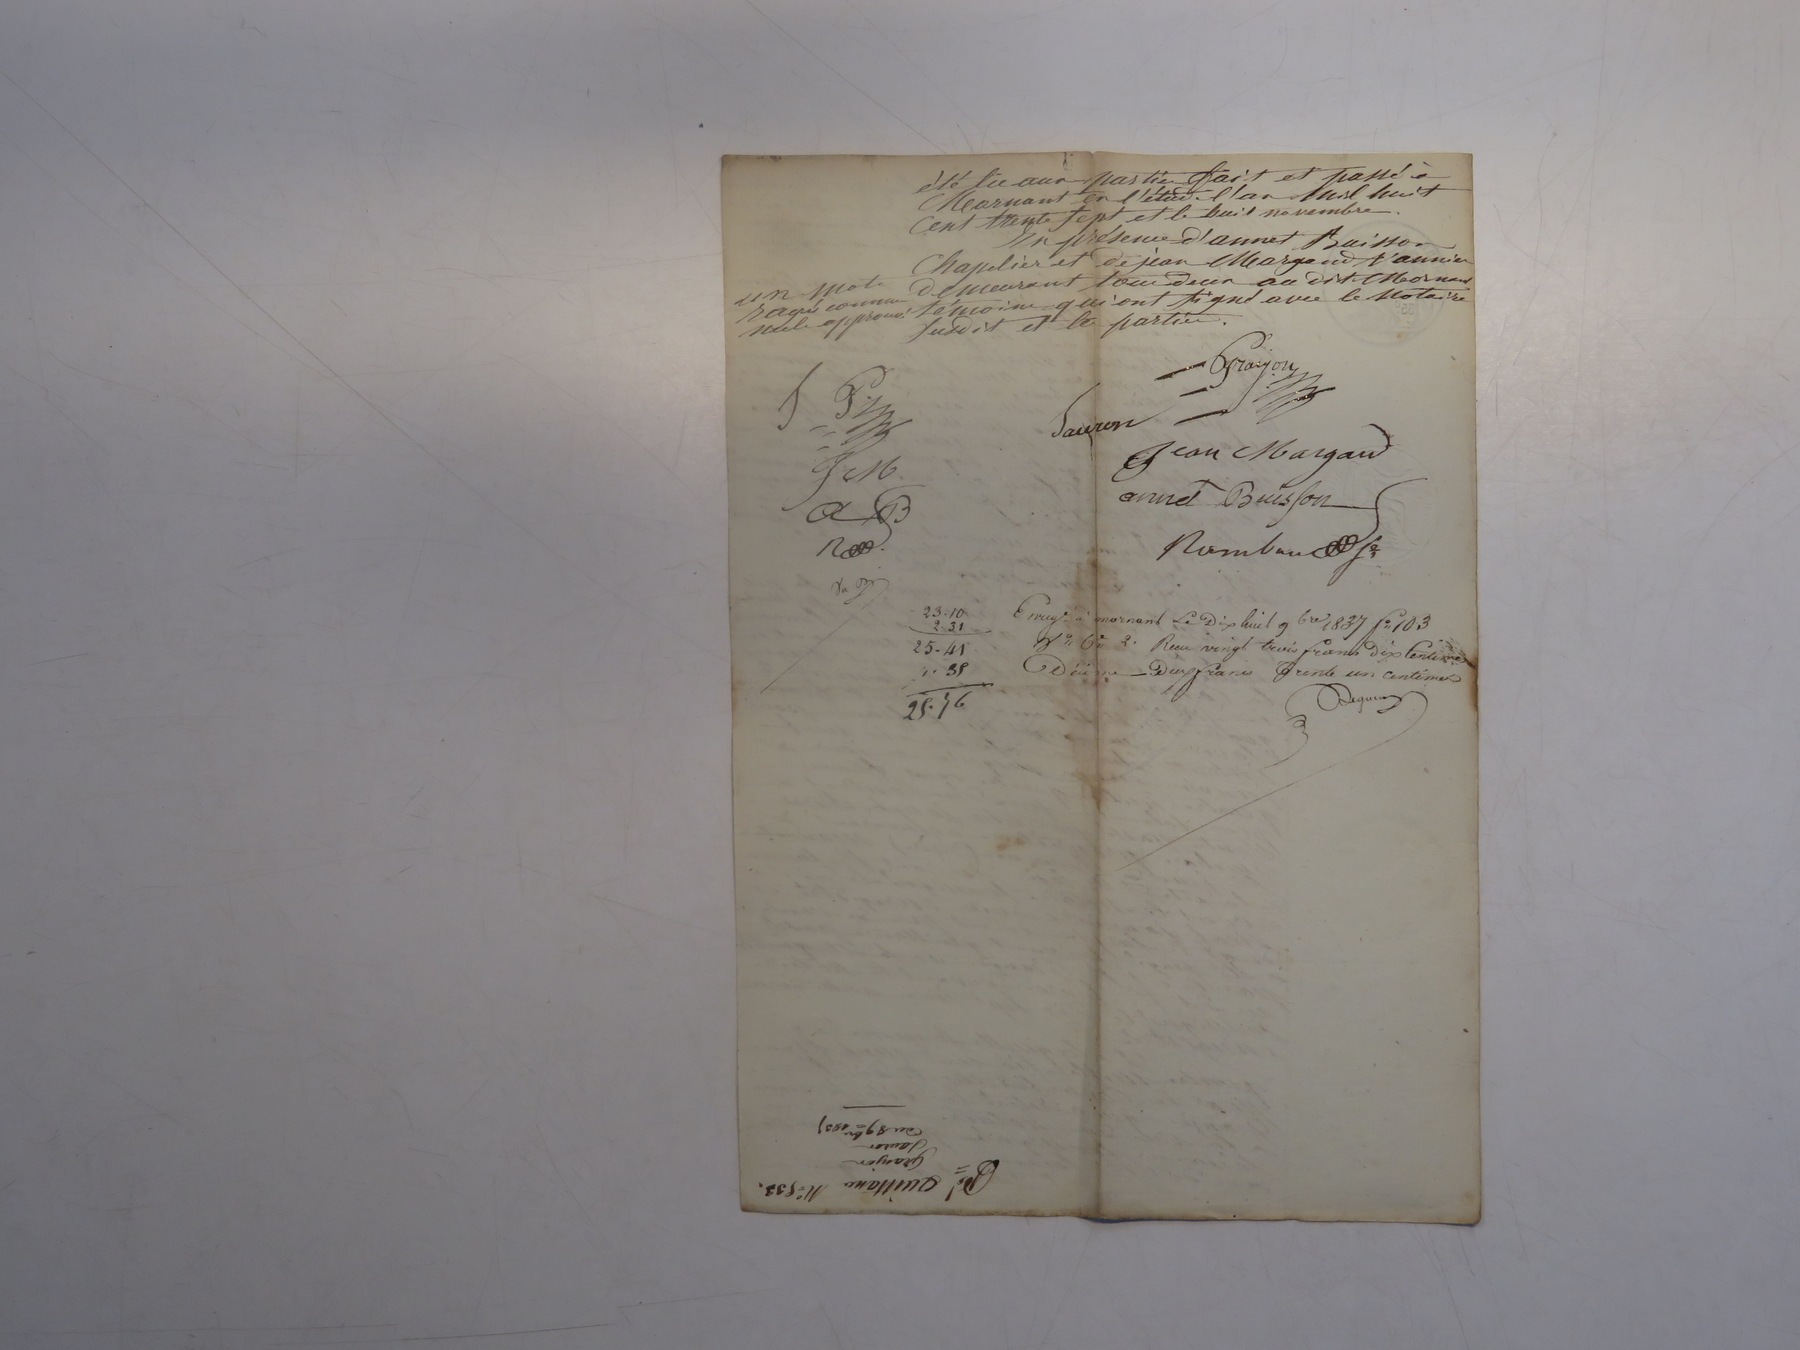 été lu aux parties fait et passé à
Mornant en l'étude l'an mil huit
Cent trente sept et le huit novembre.
En présence d'annet Buisson
Chapelier et de jean Margand Vannier
demeurant tous deux au dit Mornant
témoins qui ont signé avec le Notaire
susdit et les parties.
un mot
rayé comme
nul approuvé
Grayon
J G
Sauron
Jean Margand
J M.
annet Buisson
a B
Rambau
R
23-10
2-31
25-41
35
25-76
Enregé à mornant Le Dix huit 9bre 1837 fo 103
Vo Reçu vingt trois francs dix centimes
Décime Deux francs Trente un centimes
Quittance No 533.
Grayon
Sauron
du 8 9bre 1837